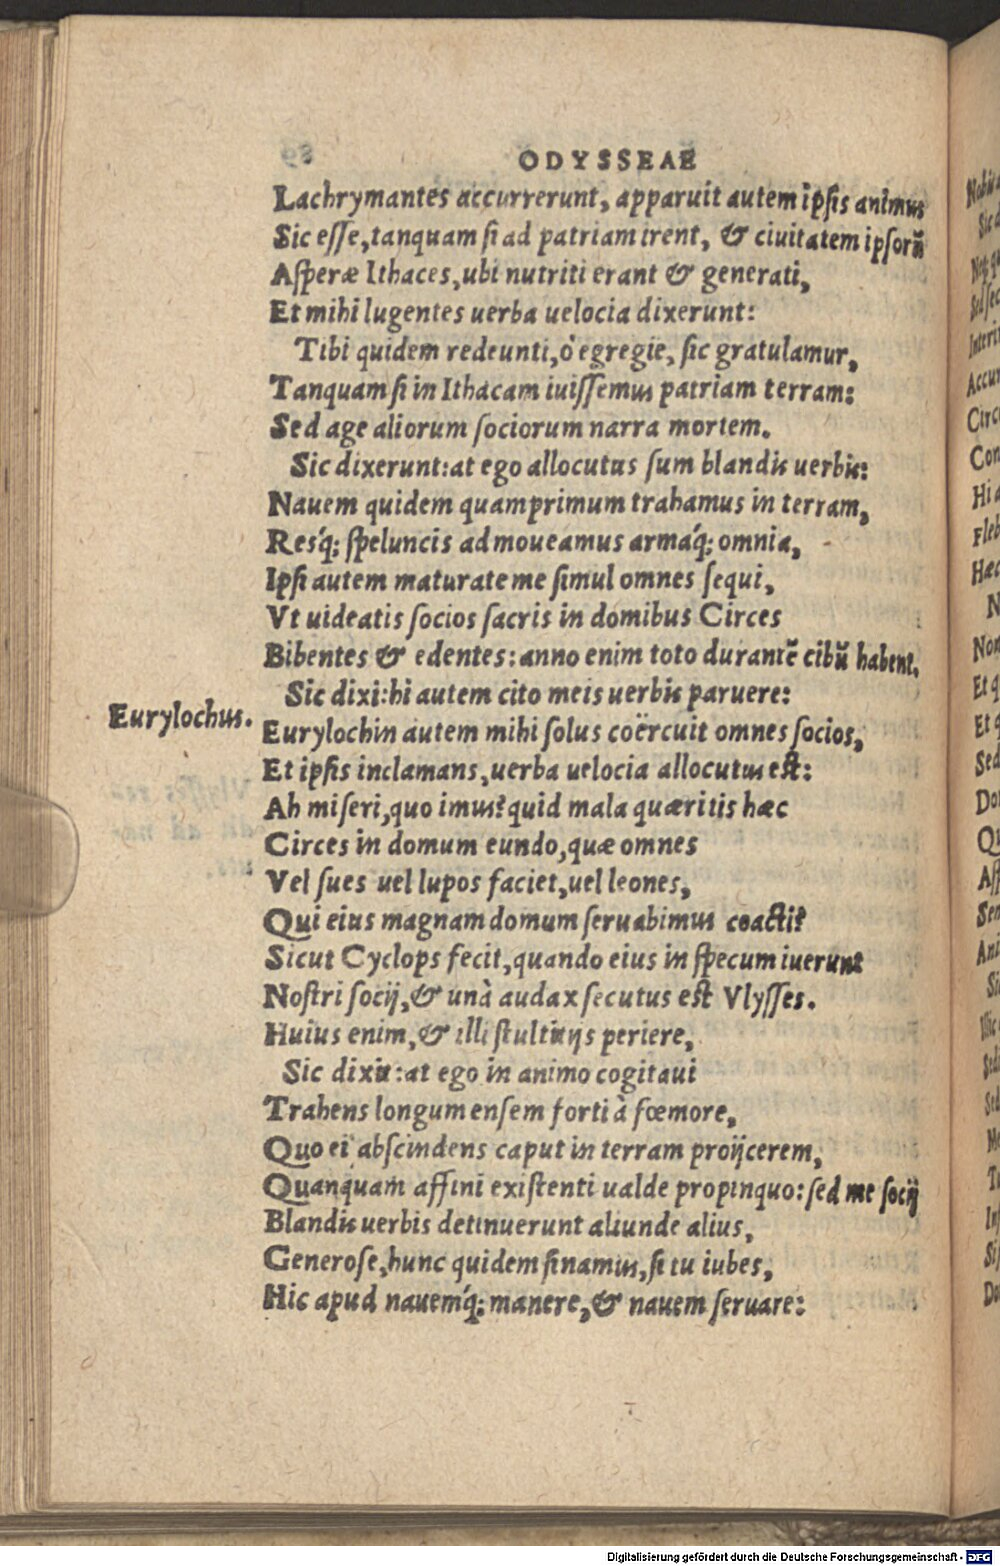 ODYSSEAE
Lachrymantes accurrerunt, apparuit autem ipsis animus
Sic esse, tanquam si ad patriam irent, & ciuitatem ipsorũ
Asperæ Ithaces, ubi nutriti erant & generati,
Et mihi lugentes uerba uelocia dixerunt:
Tibi quidem redeunti, ò egregie, sic gratulamur,
Tanquam si in Ithacam iuissemus patriam terram:
Sed age aliorum sociorum narra mortem.
Sic dixerunt: at ego allocutus sum blandis uerbis:
Nauem quidem quamprimum trahamus in terram,
Resq́; speluncis admoueamus armaq́; omnia,
Ipsi autem maturate me simul omnes sequi,
Vt uideatis socios sacris in domibus Circes
Bibentes & edentes: anno enim toto durantẽ cibũ habent.
Sic dixi: hi autem cito meis uerbis paruere:
Eurylochus.
Eurylochin autem mihi solus coërcuit omnes socios,
Et ipsis inclamans, uerba uelocia allocutus est:
Ah miseri, quo imus? quid mala quæritis hæc
Circes in domum eundo, quæ omnes
Vel sues uel lupos faciet, uel leones,
Qui eius magnam domum seruabimus coacti?
Sicut Cyclops fecit, quando eius in specum iuerunt
Nostri socij, & unà audax secutus est Vlysses.
Huius enim, & illi stultitijs periere,
Sic dixit: at ego in animo cogitaui
Trahens longum ensem forti à fœmore,
Quo ei abscindens caput in terram proijcerem,
Quanquam affini existenti ualde propinquo: sed me socij
Blandis uerbis detinuerunt aliunde alius,
Generose, hunc quidem sinamus, si tu iubes,
Hic apud nauemq́; manere, & nauem seruare:
Digitalisierung gefördert durch die Deutsche Forschungsgemeinschaft - DFG